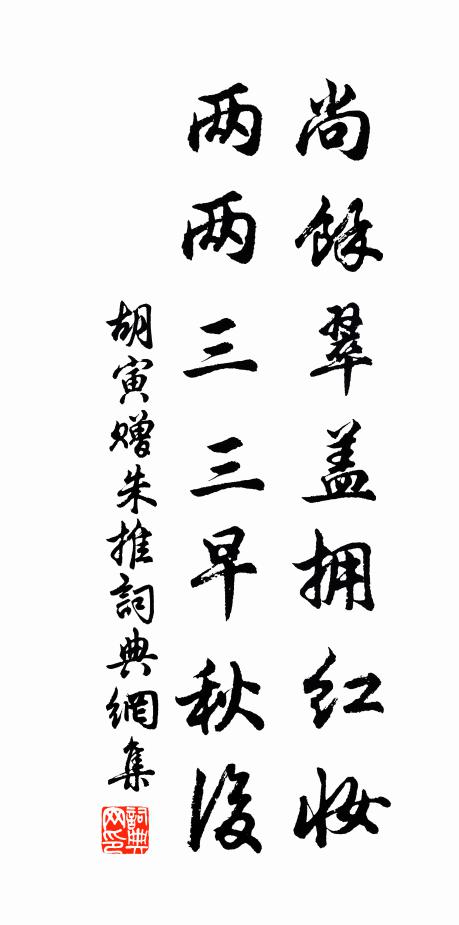 尚餘翠盖拥红妆
两两三三早秋後
胡寅赠朱推詞典網集
詞典网印